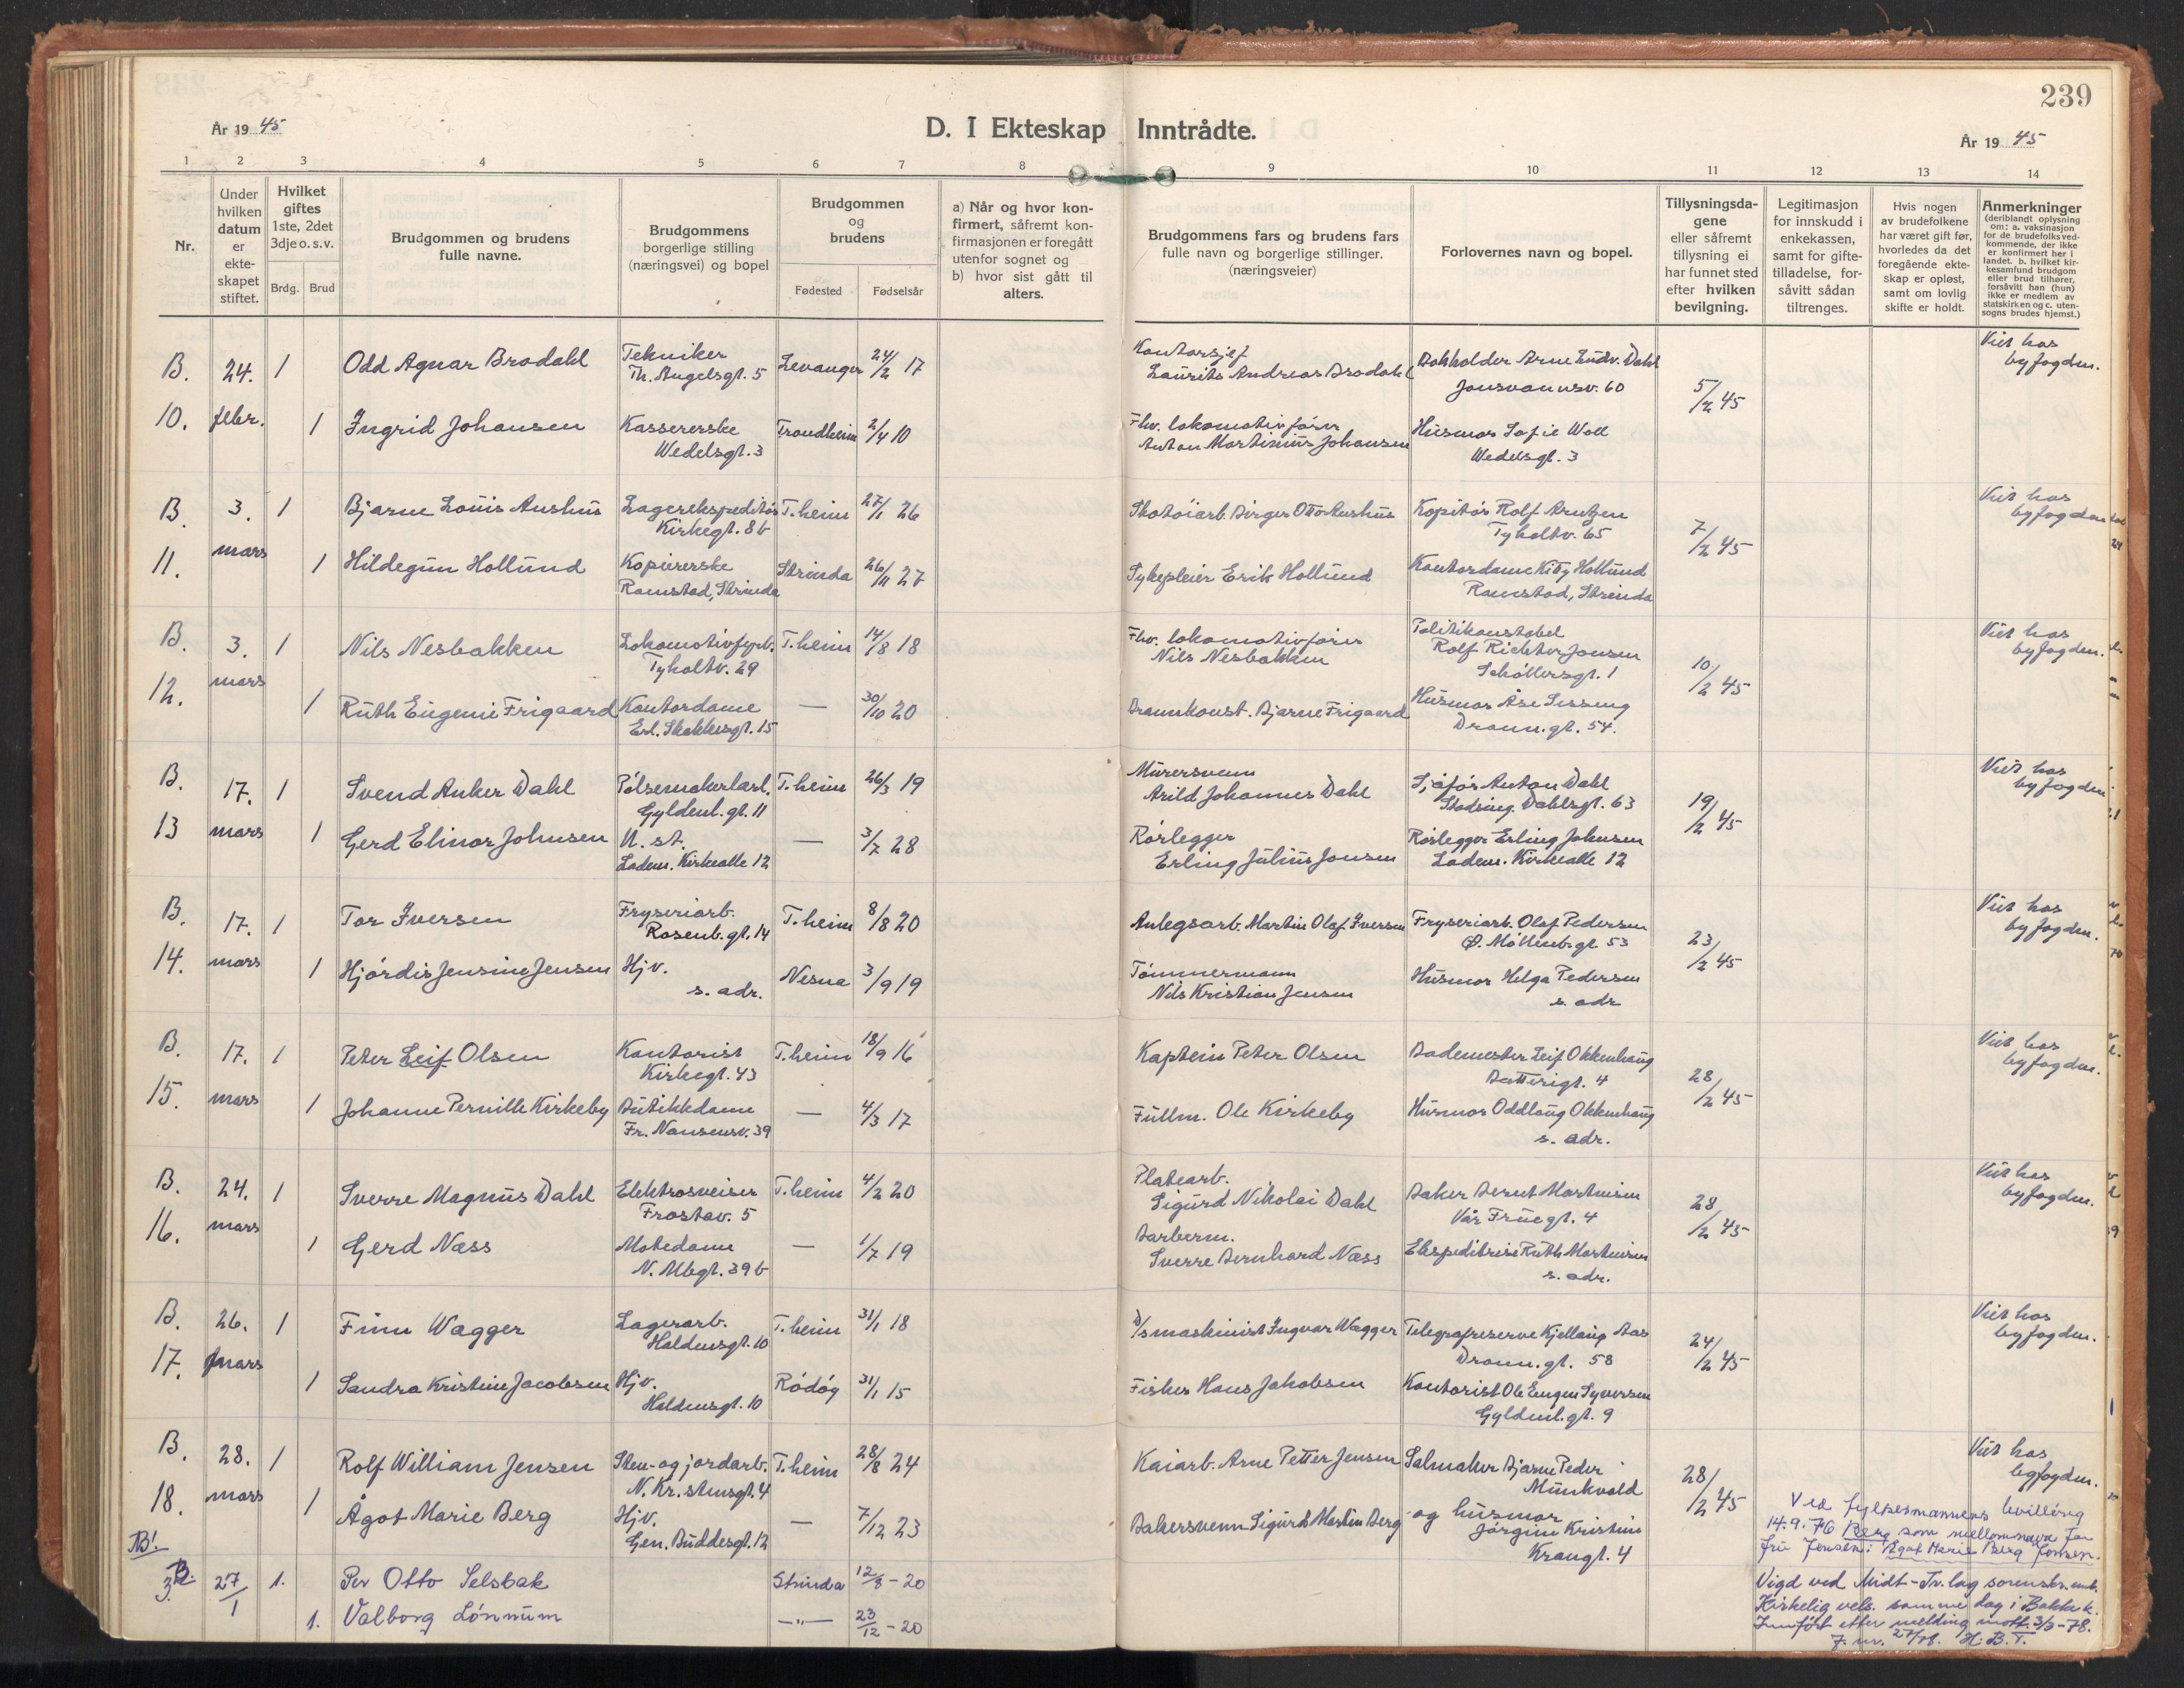 239
År 19 45
D. I Ekteskap Inntrådte.
År 19 45
1 2 3 4 5 6 7 8 9 10 11 12 13 14
Nr.
Under hvilken datum er ekteskapet stiftet.
Hvilket giftes 1ste, 2det 3dje o. s. v.
Brdg. Brud
Brudgommen og brudens fulle navne.
Brudgommens borgerlige stilling (næringsvei) og bopel
Brudgommen og brudens
Fødested Fødselsår
a) Når og hvor konfirmert, såfremt konfirmasjonen er foregått utenfor sognet og b) hvor sist gått til alters.
Brudgommens fars og brudens fars fulle navn og borgerlige stillinger. (næringsveier)
Forlovernes navn og bopel.
Tillysningsdagene eller såfremt tillysning ei har funnet sted efter hvilken bevilgning.
Legitimasjon for innskudd i enkekassen, samt for giftetilladelse, forsåvitt sådan tiltrenges.
Hvis nogen av brudefolkene har været gift før, hvorledes da det foregående ekteskap er opløst, samt om lovlig skifte er holdt.
Anmerkninger (deriblandt oplysning om: a. vaksinasjon for de brudefolks vedkommende, der ikke er konfirmert her i landet. b. hvilket kirkesamfund brudgom eller brud tilhører, forsåvitt han (hun) ikke er medlem av statskirken og c. utensogns brudes hjemst.)
B. 24. 1 Odd Agnar Brodahl Tekniker Th. Angelsgt. 5 Levanger 24/2 17 Kontorsjef Laurits Andreas Brodahl Bokholder Arne Ludv. Dahl Jonsvannsv. 60 5/2 45 Viet hos byfogden.
10. febr. 1 Ingrid Johansen Kassererske Wedelsgt. 3 Trondheim 2/4 10 Fhv. lokomotivfører Anton Martinius Johansen Husmor Sofie Woll Wedelsgt. 3
B. 3. 1 Bjarne Louis Aushus Lagerekspeditør Kirkegt. 8b T.heim 27/1 26 Skotøiarb. Birger Otto Aushus Kopitør Rolf Arntzen Tyholtv. 65 7/2 45 Viet hos byfogden
11. mars 1 Hildegun Hollund Kopiererske Ramstad, Strinda Strinda 26/11 27 Sykepleier Erik Hollund Kontordame Kitty Hollund Ramstad, Strinda
B. 3. 1 Nils Nesbakken Lokomotivfyrb. Tyholtv. 29 T.heim 14/8 18 Fhv. lokomotivfører Nils Nesbakken Politikonstabel Rolf Richter Jensen Schøllersgt. 1 10/2 45 Viet hos byfogden.
12. mars 1 Ruth Eugenie Frigaard Kontordame Erl. Skakkesgt. 15 — 30/10 20 Brannkonst. Bjarne Frigaard Husmor Åse Sissing Dronn. gt. 54.
B. 17. 1 Svend Anker Dahl Pølsemakerlærl. Gyldenl. gt. 11 T.heim 26/3 19 Murersvenn Arild Johannes Dahl Sjåfør Anton Dahl Stadsing. Dahlsgt. 63 19/2 45 Viet hos byfogden
13 mars 1 Gerd Elinor Johnsen U. st. Ladem. Kirkealle 12 — 3/7 28 Rørlegger Erling Julius Jonsen Rørlegger Erling Johnsen Ladem. Kirkealle 12
B. 17. 1 Tor Iversen Fryseriarb. Rosenb. gt. 14 T.heim 8/8 20 Anlegsarb. Martin Olaf Iversen Fryseriarb. Olaf Pedersen Ø. Møllenb. gt 53 23/2 45 Viet hos byfogden.
14. mars 1 Hjørdis Jensine Jensen Hjv. s. adr. Nesna 3/9 19 Tømmermann Nils Kristian Jensen Husmor Helga Pedersen s. adr
B. 17. 1 Peter Leif Olsen Kontorist Kirkegt. 43 T.heim 18/9 16 Kaptein Peter Olsen Bademester Leif Okkenhaug Batterigt. 4 28/2 45 Viet hos byfogden.
15. mars 1 Johanne Pernille Kirkeby Butikkdame Fr. Nansensv. 39 — 4/3 17 Fullm. Ole Kirkeby Husmor Oddlaug Okkenhaug s. adr.
B. 24. 1 Sverre Magnus Dahl Elektrosveiser Frostav. 5 T.heim 4/2 20 Platearb. Sigurd Nikolai Dahl Baker Bernt Martinsen Vår Fruegt. 4 28/2 45 Viet hos byfogden.
16. mars 1 Gerd Næss Motedame N. Mbgt. 39 b — 1/7 19 Barberm. Sverre Bernhard Næss Ekspeditrise Ruth Martinsen s. adr.
B. 26. 1 Finn Wagger Lagerarb. Haldensgt. 10 T.heim 31/1 18 D/s maskinist Ingvar Wagger Telegrafreserve Kjellaug Aas Dronn. gt. 58 24/2 45 Viet hos byfogden.
17. mars 1 Sandra Kristine Jacobsen Hjv. Haldensgt. 10 Rødøy 31/1 15 Fisker Hans Jakobsen Kontorist Ole Eugen Syversen Gyldenl. gt. 9
B. 28. 1 Rolf William Jensen Sten- og jordarb. N. Kr. stensgt. 4 T.heim 28/8 24 Kaiarb. Arne Petter Jensen Salmaker Bjarne Peder Munkvold 28/2 45 Viet hos byfogden.
18. mars 1 Ågot Marie Berg Hjv. Gen. Buddesgt. 12 — 7/12 23 Bakersvenn Sigurd Martin Berg og husmor Jørgine Kristine Krangt. 4
Ved fylkesmannens bevilling
14.9.76 Berg som mellomnavn for
fru Jensen: Ågot Marie Berg Jensen.
NB!
B 3. 27/1 1. Per Otto Selsbak Strinda 12/8 - 20
1. Valborg Lønnum —"— 23/12 - 20
Vigd ved Midt-Tr.lag sorenskr. emb.
Kirkelig vels. samme dag i Bakke k.
Innført etter melding mott. 3/3-78.
J. nr. 27/78. H. B. T.